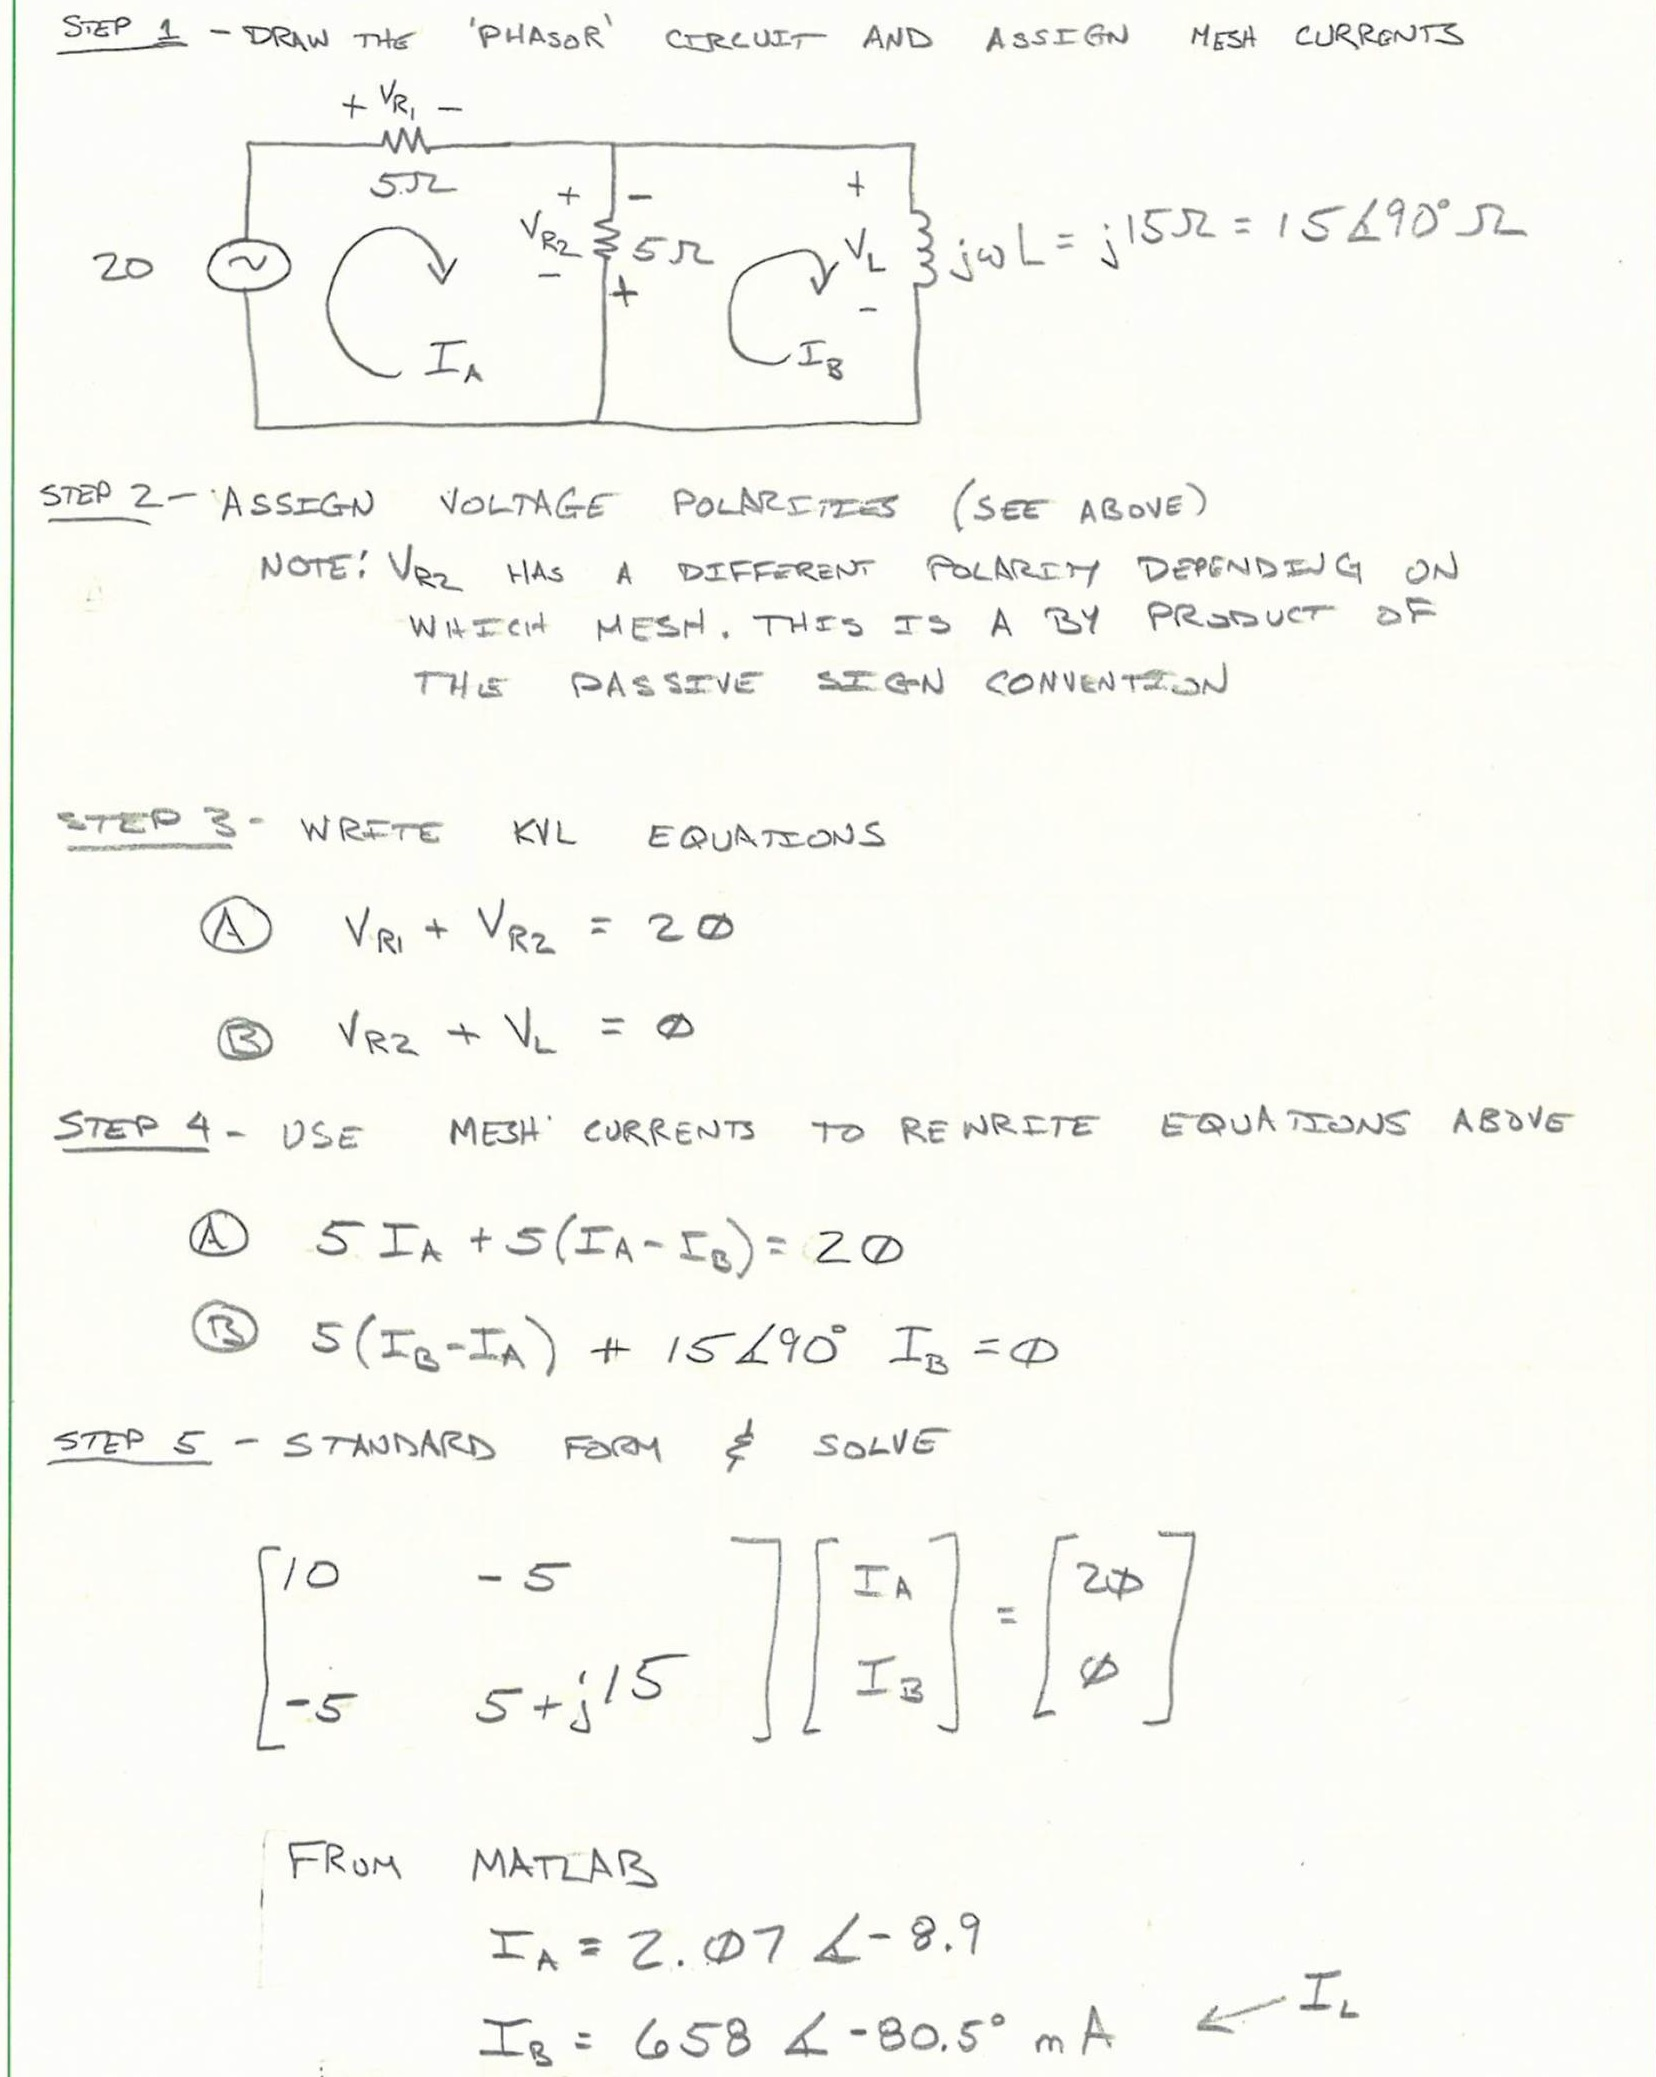 STEP 1 - DRAW THE 'PHASOR' CIRCUIT AND ASSIGN MESH CURRENTS
+ VR1 -
5Ω
20
IA
+
VR2
-
-
5Ω
+
IB
+
VL
-
jωL = j15Ω = 15∠90° Ω
STEP 2 - ASSIGN VOLTAGE POLARITIES (SEE ABOVE)
NOTE: VR2 HAS A DIFFERENT POLARITY DEPENDING ON
WHICH MESH. THIS IS A BY PRODUCT OF
THE PASSIVE SIGN CONVENTION
STEP 3 - WRITE KVL EQUATIONS
(A) VR1 + VR2 = 20
(B) VR2 + VL = 0
STEP 4 - USE MESH CURRENTS TO REWRITE EQUATIONS ABOVE
(A) 5 IA + 5(IA - IB) = 20
(B) 5(IB - IA) + 15∠90° IB = 0
STEP 5 - STANDARD FORM & SOLVE
[10 -5] [IA] = [20]
[-5 5+j15] [IB] [0]
FROM MATLAB
IA = 2.07 ∠-8.9
IB = 658 ∠-80.5° mA ← IL